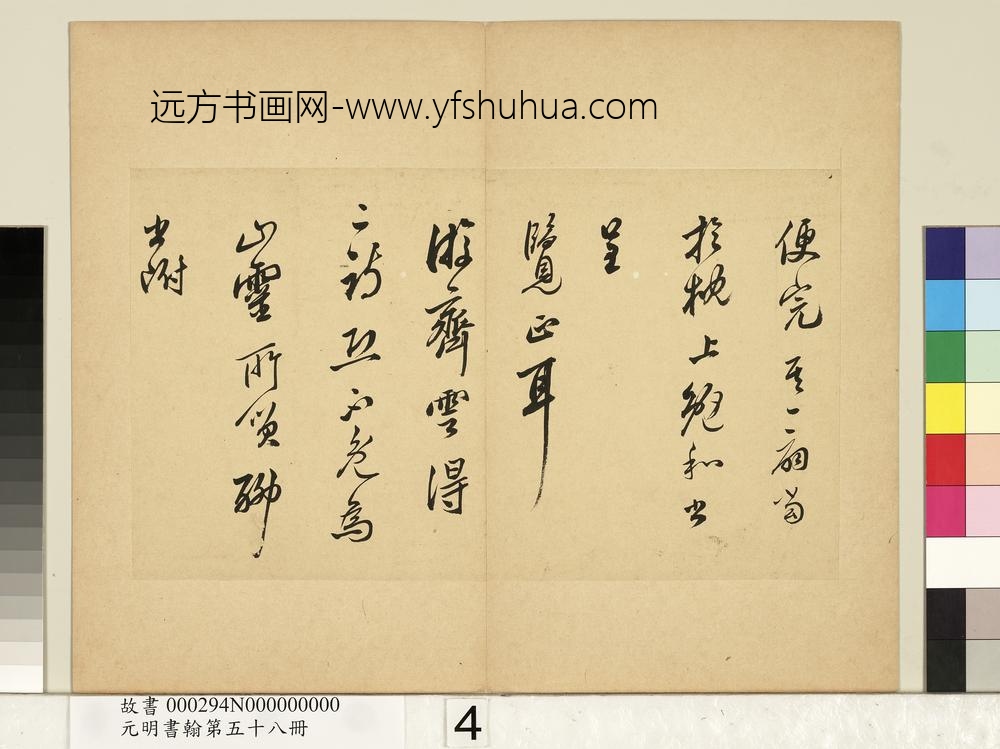 远方书画网-www.yfshuhua.com
便完其二扇當
於枕上總和书
呈
覽正耳
游齊雲得
二詩恐不免為
山靈所笑聊
书附
故書 000294N000000000
元明書翰第五十八冊
4